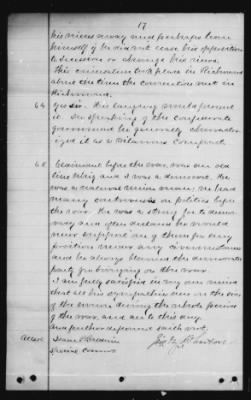 17
his views away and perhaps leave
himself if he did not cease his opposition
to secession or change his views.
This conversation took place in Richmond
about the time the convention met in
Richmond.
64 Yes sir. His language would permit
it. In speaking of the confederate
government he generally character-
ized it as a villainous compact.
65 Claimant before the war was an old
line Whig and I was a democrat. He
was a national union man; we had
many controversies on politics before
the war. He was a strong for the
and often declared he would
never support any of them for any
position under any circumstances
and he always blamed the democratic
party for bringing on the war.
I am fully satisfied in my own mind
that all his sympathies were on the side
of the union during the whole period
of the war, and as to this any
and further deponent saith not.
Attest